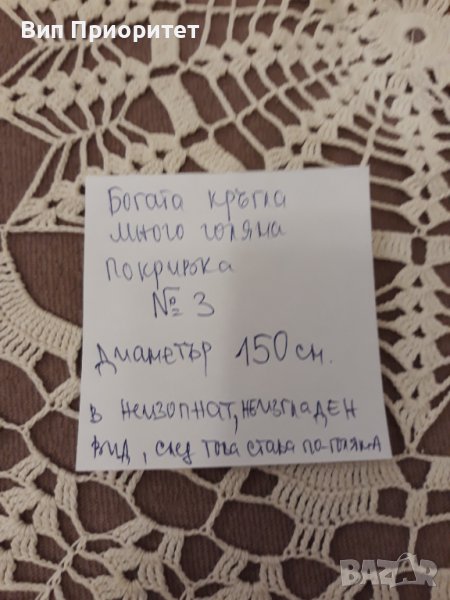 Вип Приоритет
Богата кръгла
много голяма
покривка
№ 3
Диаметър 150 см.
в неизопнат, неизгладен
вид, след това става по голяма
BAZAR